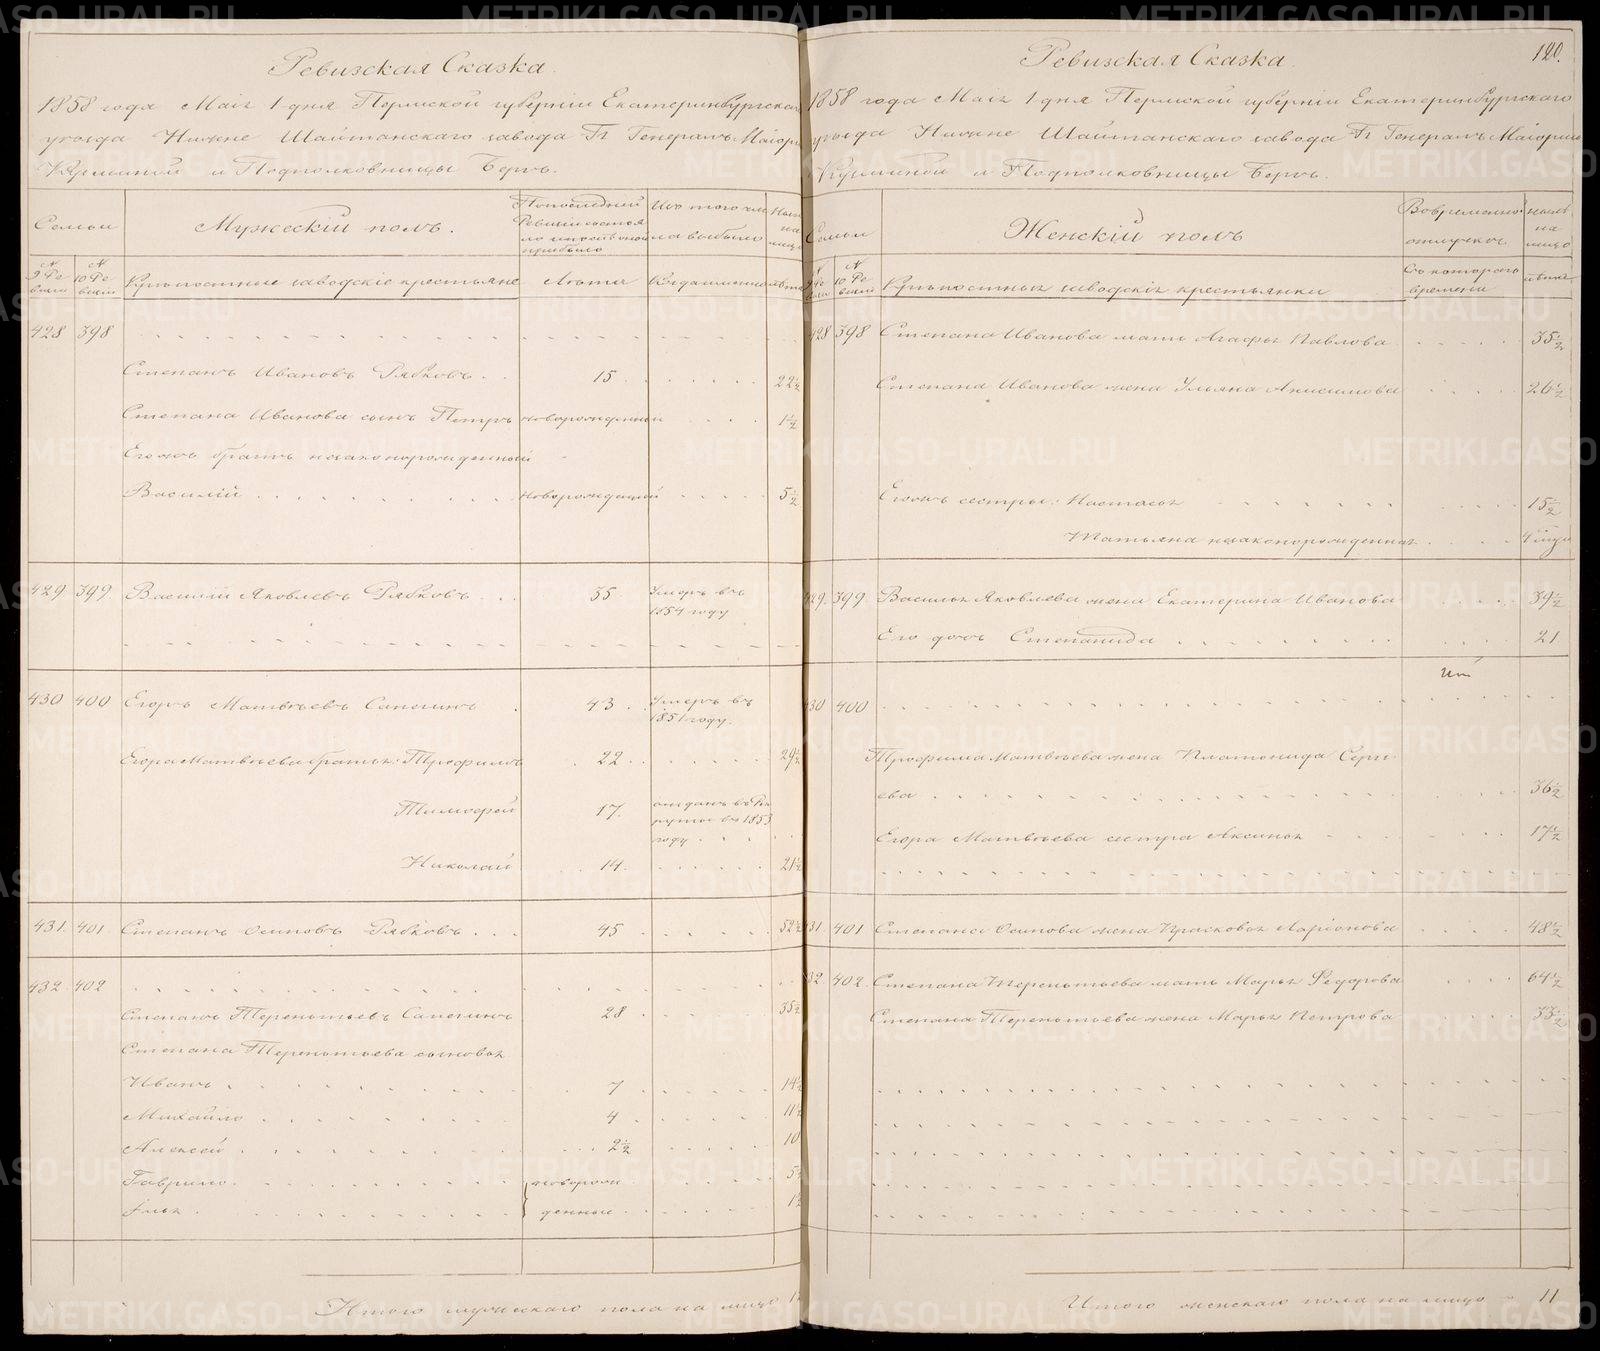 Ревизская Сказка.
1858 года Маія 1 дня Пермской губерніи Екатеринбургскаго
уѣзда Нижне Шайтанскаго завода Гг Генералъ Маіорши
Кузминой и Подполковницы Бергъ.
Семьи
Мужескій полъ.
По последней Ревизіи состояло и после оной прибыло
Изъ того числа выбыло
Ныне на лицо
N 9 Ревизіи
N 10 Ревизіи
Крѣпостные заводскіе крестьяне
Лѣта
Когда именно
лѣта
428 398
Степанъ Ивановъ Рябковъ 15 22½
Степана Иванова сынъ Петръ новорожденный 1½
Егожъ братъ незаконорожденный
Василій новорожденный 5½
429. 399. Василій Яковлевъ Рябковъ 35 Умеръ въ
1854 году
430 400 Егоръ Матвѣевъ Сапегинъ 43 Умеръ въ
1851 году.
Егора Матвѣева братья: Трофимъ 22 29½
Тимофей 17. отданъ въ Рекруты въ 1853
году
Николай 14 21½
431. 401. Степанъ Осиповъ Рябковъ 45 52½
432 402
Степанъ Терентьевъ Сапегинъ 28 35½
Степана Терентьева сыновья
Иванъ 7 14½
Михайло 4 11½
Алексей 2½ 10
Гаврило новорож 5½
Илья денные 1½
Итого мужескаго пола на лицо
120.
Ревизская Сказка.
1858 года Маія 1 дня Пермской губерніи Екатеринбургскаго
уѣзда Нижне Шайтанскаго завода Гг Генералъ Маіорши
Кузминой и Подполковницы Бергъ.
Семьи
Женскій полъ
Во временной отлучке
ныне на лицо
N 9 Ревизіи
N 10 Ревизіи
Крѣпостныя заводскія крестьянки
Съ котораго времени
лѣта
428 398 Степана Иванова мать Агафья Павлова 35½
Степана Иванова жена Ульяна Анисимова 26½
Егожъ сестры: Настасья 15½
Татьяна незаконорожденная
429. 399. Василья Яковлева жена Екатерина Иванова 39½
Его дочь Степанида 21
430 400
Трофима Матвѣева жена Платонида Серге
ева 36½
Егора Матвѣева сестра Аксинья 17½
431 401 Степана Осипова жена Прасковья Ларіонова 48½
432 402. Степана Терентьева мать Марья Федорова 64½
Степана Терентьева жена Марья Петрова 33½
Итого женскаго пола на лицо 11
METRIKI.GASO-URAL.RU